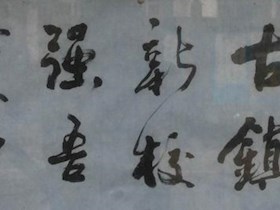 古鎮
新校
强吾